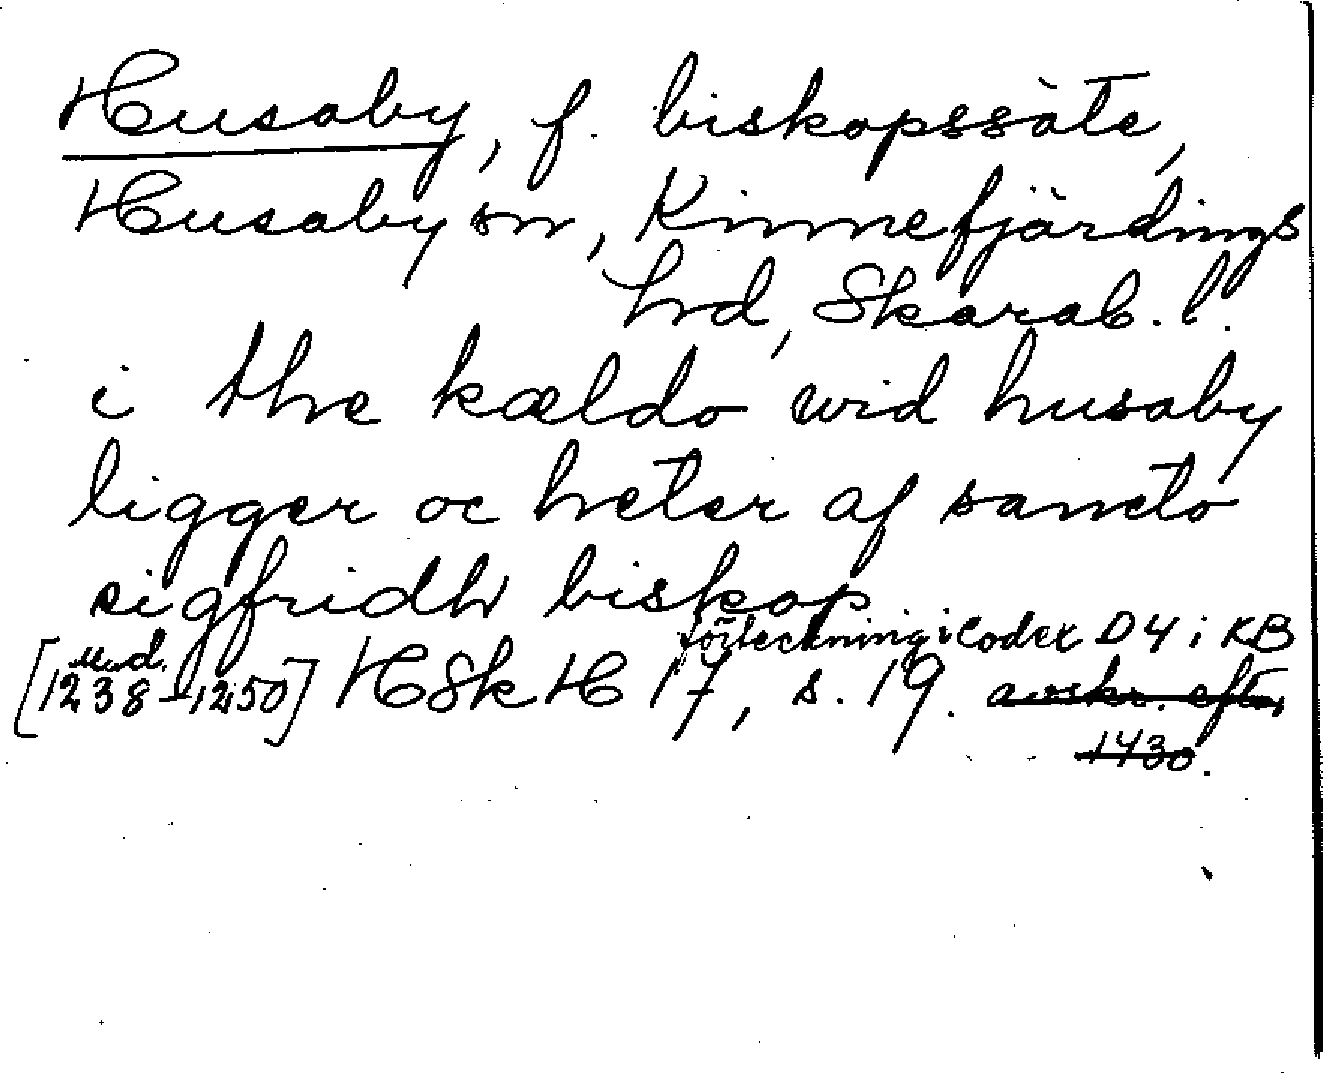 Husaby, f. biskopssäte,
Husaby sn, Kinnefjärdings
hd, Skarab. l.
i the kældo wid husaby
ligger oc heter af sancto
sigfridh biskop
förteckning i codex D 4 i KB
u.d.
[1238-1250] HSkH 17, s. 19. avskr. efter
1430.